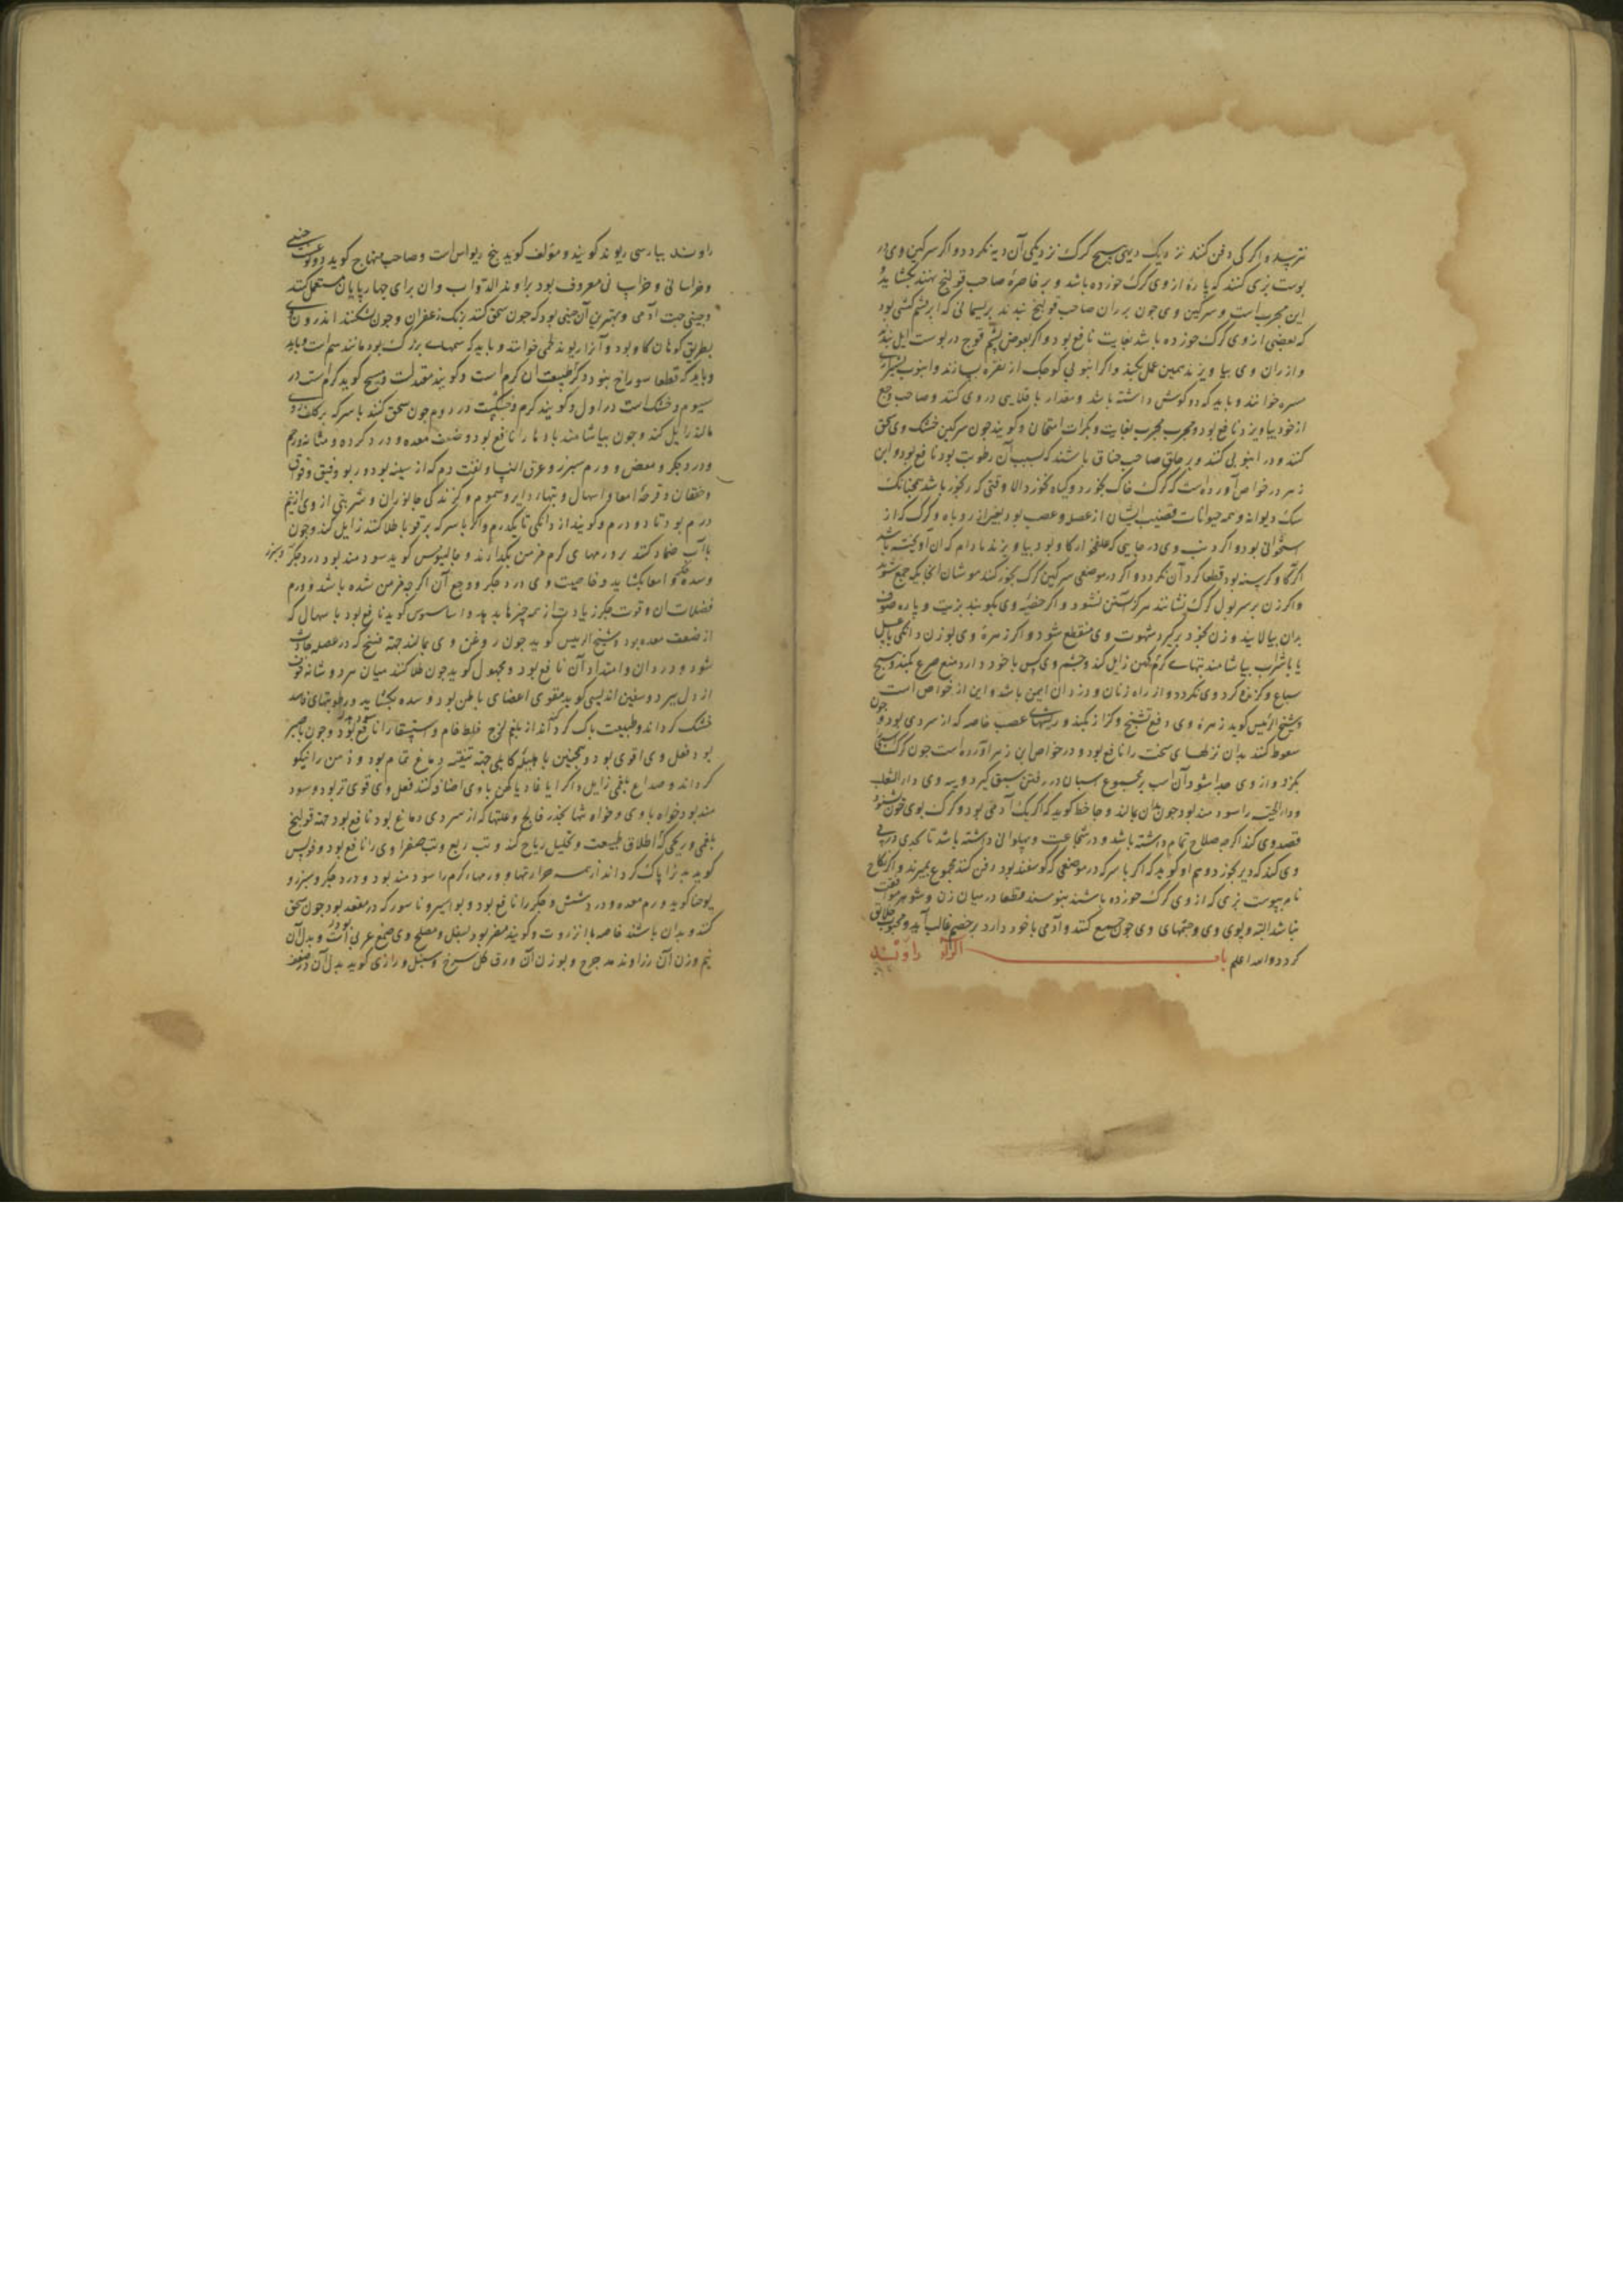 نترسد و اگر کی دفن کنند نزدیک دیهی هیچ گرگ نزدیکی آن دیه نگردد و اگر سرکین وی در
پوست بزی کنند که پارهٔ از وی گرگ خورده باشد و بر خاصرهٔ صاحب قولنج نهند بکشاید و
این مجرب است و سرکین وی چون بر ران صاحب قولنج بندند بریسمانی که از پشم کبشی بود
که بعضی از وی گرگ خورده باشد بغایت نافع بود و اگر بعوض پشم قوچ در پوست ایل بندند
و از ران وی بیاویزند همین عمل بکند و اگر انبوبی کوچک از نقره بسازند و انبوب
خوانند و باید که دو گوش داشته باشد و مقدار باقلایی در وی کنند و صاحب وجع
از خود بیاویزد نافع بود و مجرب مجرب بغایت و بکرات امتحان و گویند چون سرکین خشک وی سحق
کنند و در انبوبی کنند و بر حلق صاحب خناق باشند که بسبب آن رطوبت بود نافع بود و ابن
زهر در خواص آورده است که گرگ خاک بخورد و گیاه نخورد الا وقتی که رنجور باشد همچنانک
سگ دیوانه و همه حیوانات قضیب ایشان از عضله و عصب بود بغیر از روباه و گرگ که از
استخوانی بود و اگر ذنب وی در جایی که علفخوار گاو بود بیاویزند مادام که آن آویخته باشد
اگر گاو گرسنه بود قطعا گرد آن نگردد و اگر در موضعی سرکین گرگ بخور کنند موشان آنجایکه جمع شوند
و اگر زن بر سر بول گرگ نشانند هرگز آبستن نشود و اگر خصیهٔ وی بکوبند بزیت و پاره صوف
بدان بیالایند و زن بخود برگیرد شهوت وی منقطع شود و اگر زهرهٔ وی بوزن دانگی با عسل
یا با شراب بیاشامند تبهای گرم کهن زایل کند و چشم وی کسی با خود دارد منع صرع بکند و هیچ
سباع و گزنده گرد وی نگردد و از راه زنان و دزدان ایمن باشد و این از خواص است
و شیخ الرئیس گوید زهرهٔ وی دفع تشنج و کزاز بکند و ریشهای عصب خاصه که از سردی بود و چون
سعوط کنند بدان نزلهای سخت را نافع بود و در خواص ابن زهر آورده است چون گرگ اسبی
بگزد و از وی جدا شود آن اسب بر مجموع اسبان در رفتن سبق گیرد و پیه وی داء الثعلب
و داء الحیة را سود مند بود چون بدان بمالند و جاحظ گوید که اگر یک آدمی بود و گرگ بوی خون شنود
قصد وی کند اگرچه صلاح تمام داشته باشد و در شجاعت و پهلوانی داشته باشد تا بحدی در پی
وی کند که دیر بخورد و هم او گوید که اگر با سرکه در موضعی که گوسفند بود دفن کنند مجموع بمیرند و اگر نکاح
نامه بپوست بزی که از وی گرگ خورده باشند بنویسند قطعا در میان زن و شوهر موافقت
نباشد البته و بوی وی و چشمهای وی چون جمع کنند و آدمی با خود دارد بر خصم غالب آید و محبوب خلایق
گردد والله اعلم باب الراء راوند
راوند بپارسی ریوند گویند و مؤلف گوید بیخ ریواس است و صاحب منهاج گوید دو نوعست چینی
و خراسانی و خراسانی معروف بود براوند الدواب و آن برای چهارپایان مستعمل کنند
و چینی جهت آدمی و بهترین آن چینی بود که چون سحق کنند برنگ زعفران و چون بشکنند اندرون وی
بطریق کوهان گاو بود و آنرا ریوند لحمی خوانند و باید که سمهای بزرگ بود مانند سم است و باید
و باید که قطعا سوراخ نبود و گر طبیعت آن گرم است و گویند معتدلست و مسیح گوید گرم است در
سیوم و خشک است در اول و گویند گرم و خشکست در دوم چون سحق کنند با سرکه بر کلف
مالند زایل کند و چون بیاشامند بادها را نافع بود و ضعف معده و درد گرده و مثانه و رحم
و درد جگر و مغص و ورم سپرز و عرق النسا و نفث دم که از سینه بود و ربو و فیق و فواق
و خفقان و قرحهٔ امعا و اسهال و تبهای دایر و سموم و گزندگی جانوران و شربتی از وی از نیم
درم بود تا دو درم و گویند از دانگی تا یکدرم و اگر با سرکه بر قوبا طلا کنند زایل کند و چون
با آب ضماد کنند بر ورمهای گرم مزمن بگدازند و جالینوس گوید سود مند بود درد جگر و سپرز
و سده جگر و امعا بکشاید و خاصیت وی در درد جگر و وجع آن اگرچه مزمن شده باشد و ورم
عضلات آن و قوت جگر زیادت از همه چیزها بدهد و اساسوس گوید نافع بود با سهال که
از ضعف معده بود و شیخ الرئیس گوید چون روغن وی بمالند جهة فسخ که در عضله حادث
شود و درد آن و امتداد آن نافع بود و مجهول گوید چون طلا کنند میان هر دو شانه خوف
از دل ببرد و سفین اندلیسی گوید مقوی اعضای باطن بود و سده بکشاید و رطوبتهای فاسد
خشک گرداند و طبیعت پاک گرداند از بلغم لزج غلیظ خام و استسقا را نافع بود و چون با صبر
بود فعل وی اقوی بود و همچنین با هلیلهٔ کابلی جهة تنقیه دماغ تمام بود و ذهن را نیکو
گرداند و صداع بلغمی زایل و اگر ایا غاد یا کهن با وی اضافه کنند فعل وی قوی تر بود و سود
مند بود خواه با وی و خواه تنها بخدر فالج و علتها که از سردی دماغ بود نافع بود جهة قولنج
بلغمی و ریحی که اطلاق طبیعت و تحلیل ریاح کند و تب ربع و تب صفراوی را نافع بود و فولس
گوید بدنرا پاک گرداند از همه حرارتها و ورمهاء گرم را سود مند بود و درد جگر و سپرز و
یوحنا گوید ورم معده و درد شش و جگر را نافع بود و بواسیر و ناسور که در مقعد بود چون سحق
کنند و بدان باشند خاصه با انزروت و گویند مضر بود بسفل و مصلح وی صمغ عربی است و بدل آن
نیم وزن آن زراوند مدحرج و بوزن آن ورق گل سرخ و سنبل و رازی گوید بدل آن در ضعف